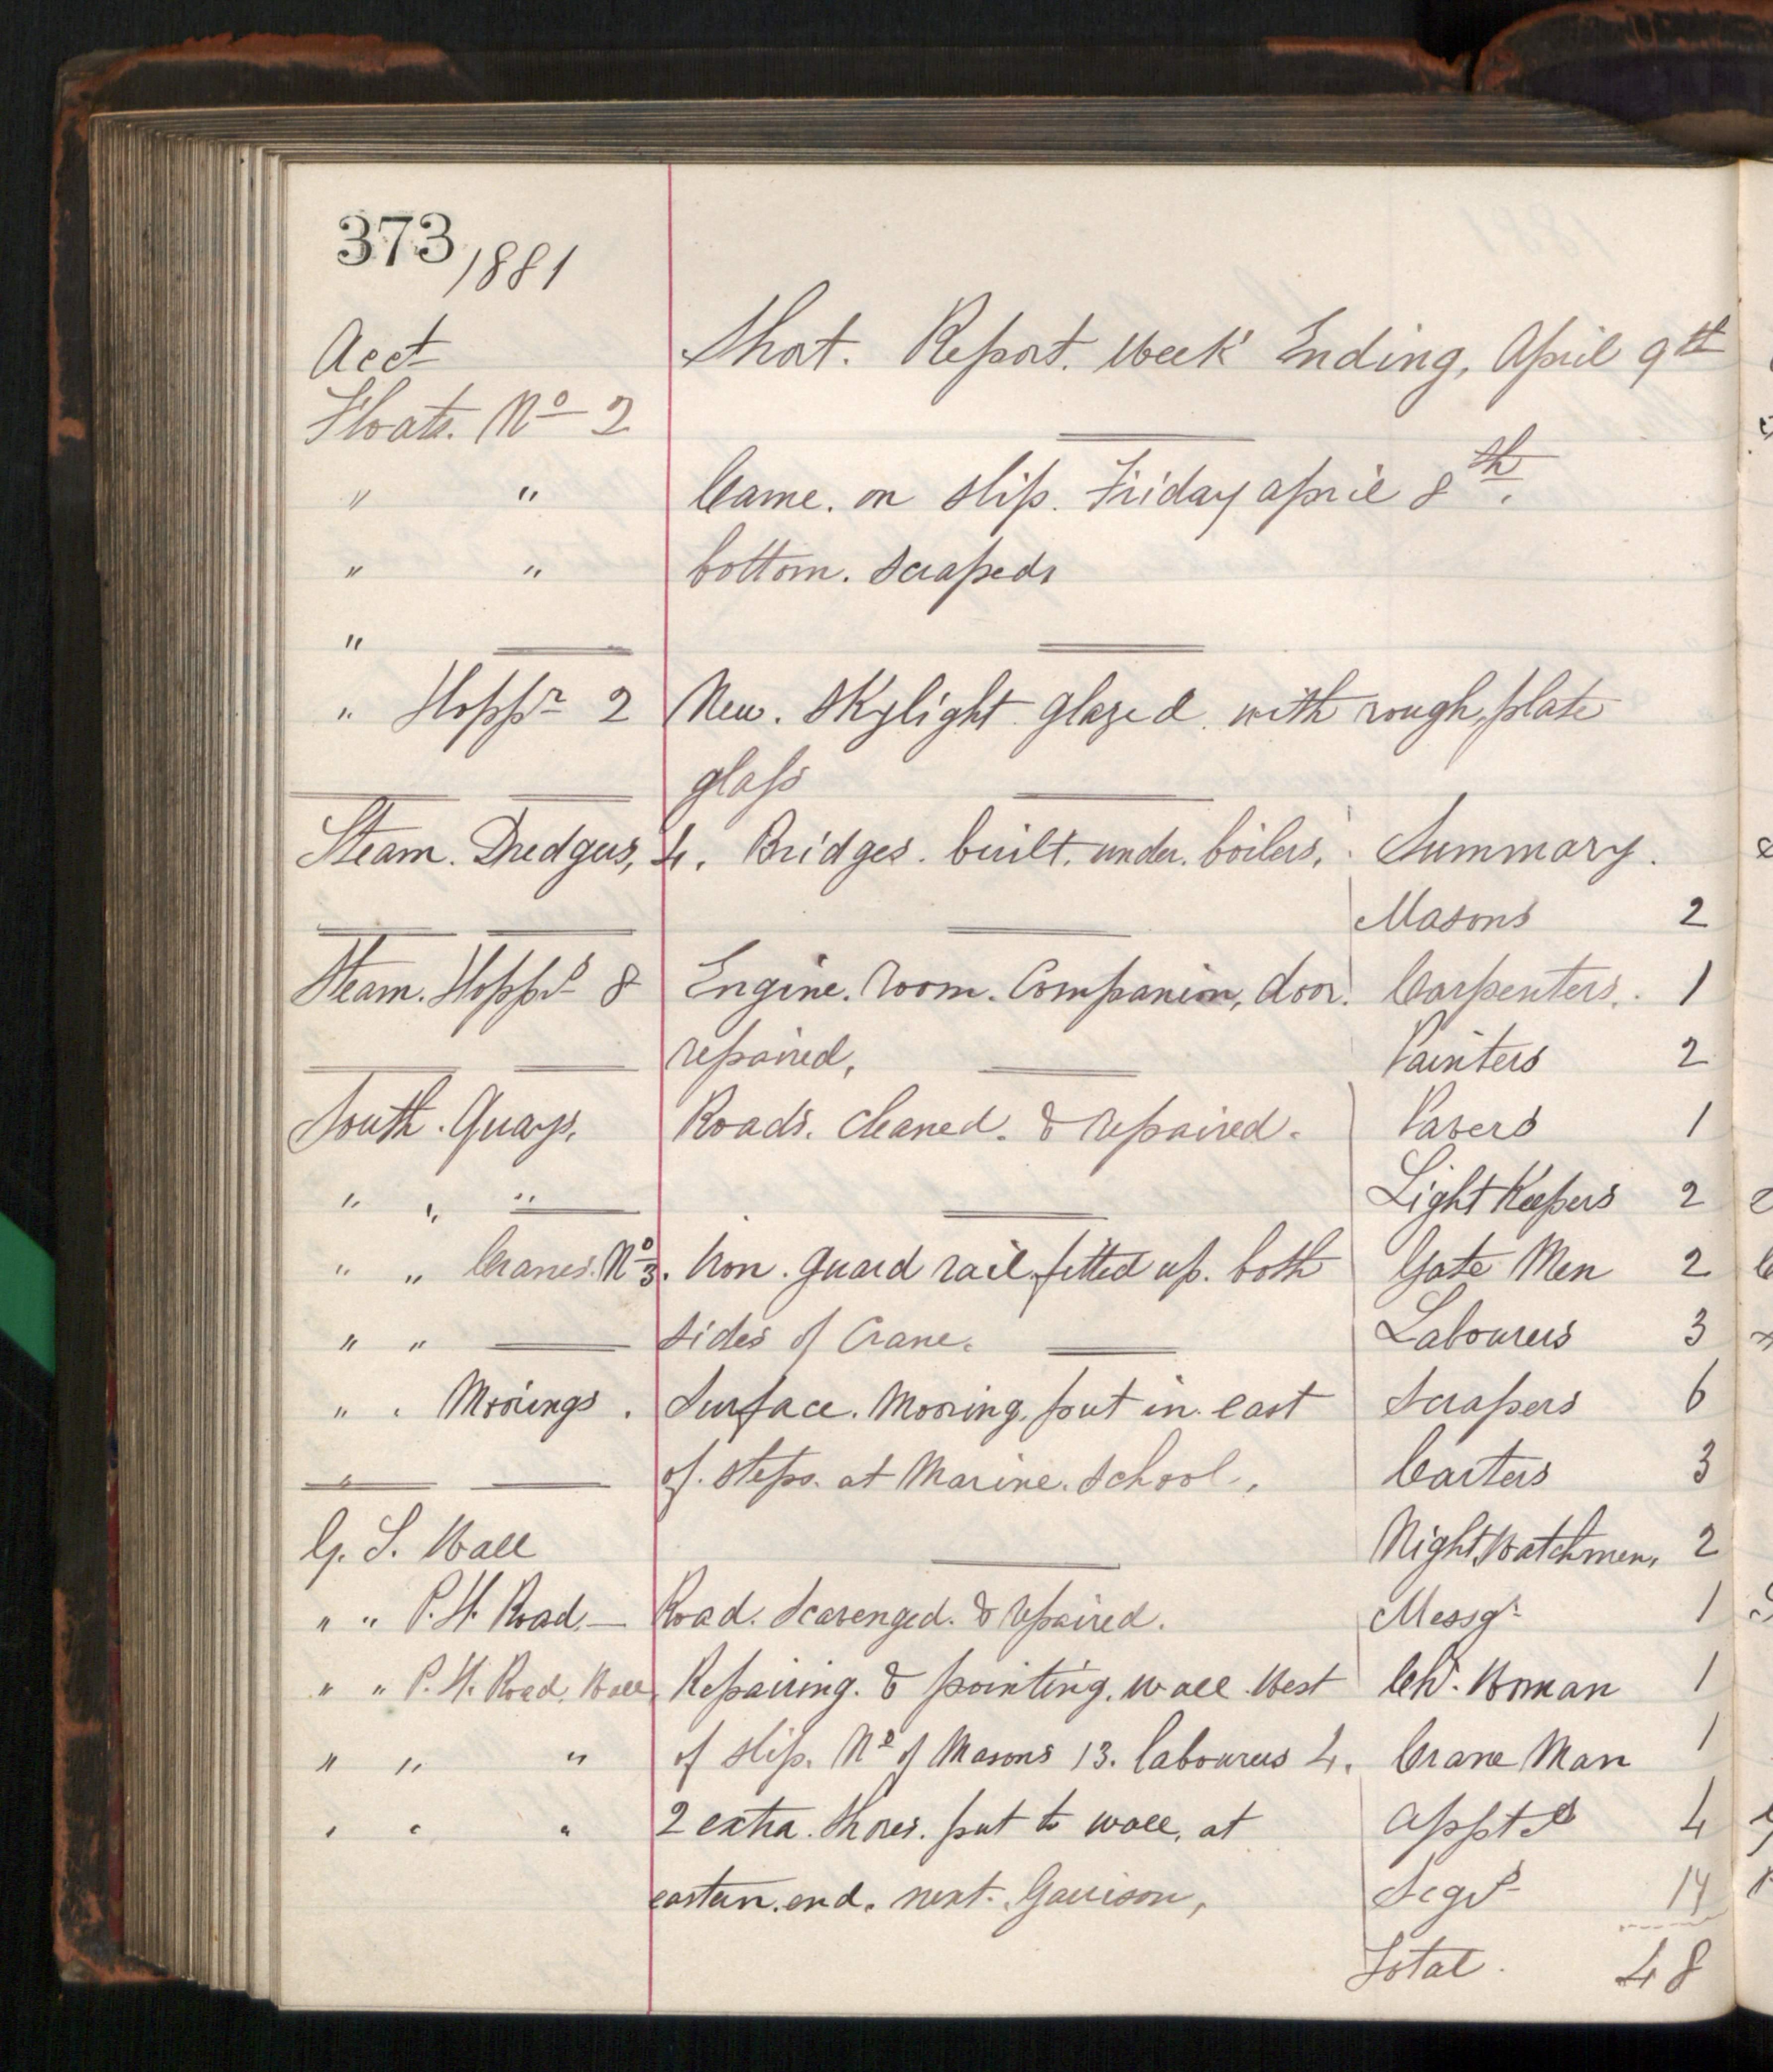 373 / 1881
Acct Short. Report. Week Ending, April 9th
Floats. No 2
" " Came. on slip. Friday april 8th.
" " bottom. scraped,
"
" Hoppr 2 New. Skylight glazed with rough, plate
glass
Steam. Dredgers, 4. Bridges. built. under. boilers, Summary.
Masons 2
Steam. Hopprs 8 Engine. Room. Companion, door. Carpenters. 1
repaired, Painters 2
South. Quays. Roads. cleaned. & repaired. Pavers 1
" " " Light Keepers 2
" " Cranes. No 3. Iron. guard rail fitted up. both Gate Men 2
" " sides of Crane. Labourers 3
" " Moorings. Surface. Mooring, put in. east Scrapers 6
" of. steps. at Marine. School., Carters 3
G. S. Wall Night Watchmen, 2
" " P. H. Road. — Road. Scavenged. & repaired. Messgr 1
" " P. H. Road. Wall, Repairing. & pointing. wall West Ch. Woman 1
" " " of slip. No of Masons 13. labourers 4. Crane Man 1
" " " 2 extra. Shores. put to wall, at apptes 4
eastern. end. next. Garrison, Segrs 14
Total. 48